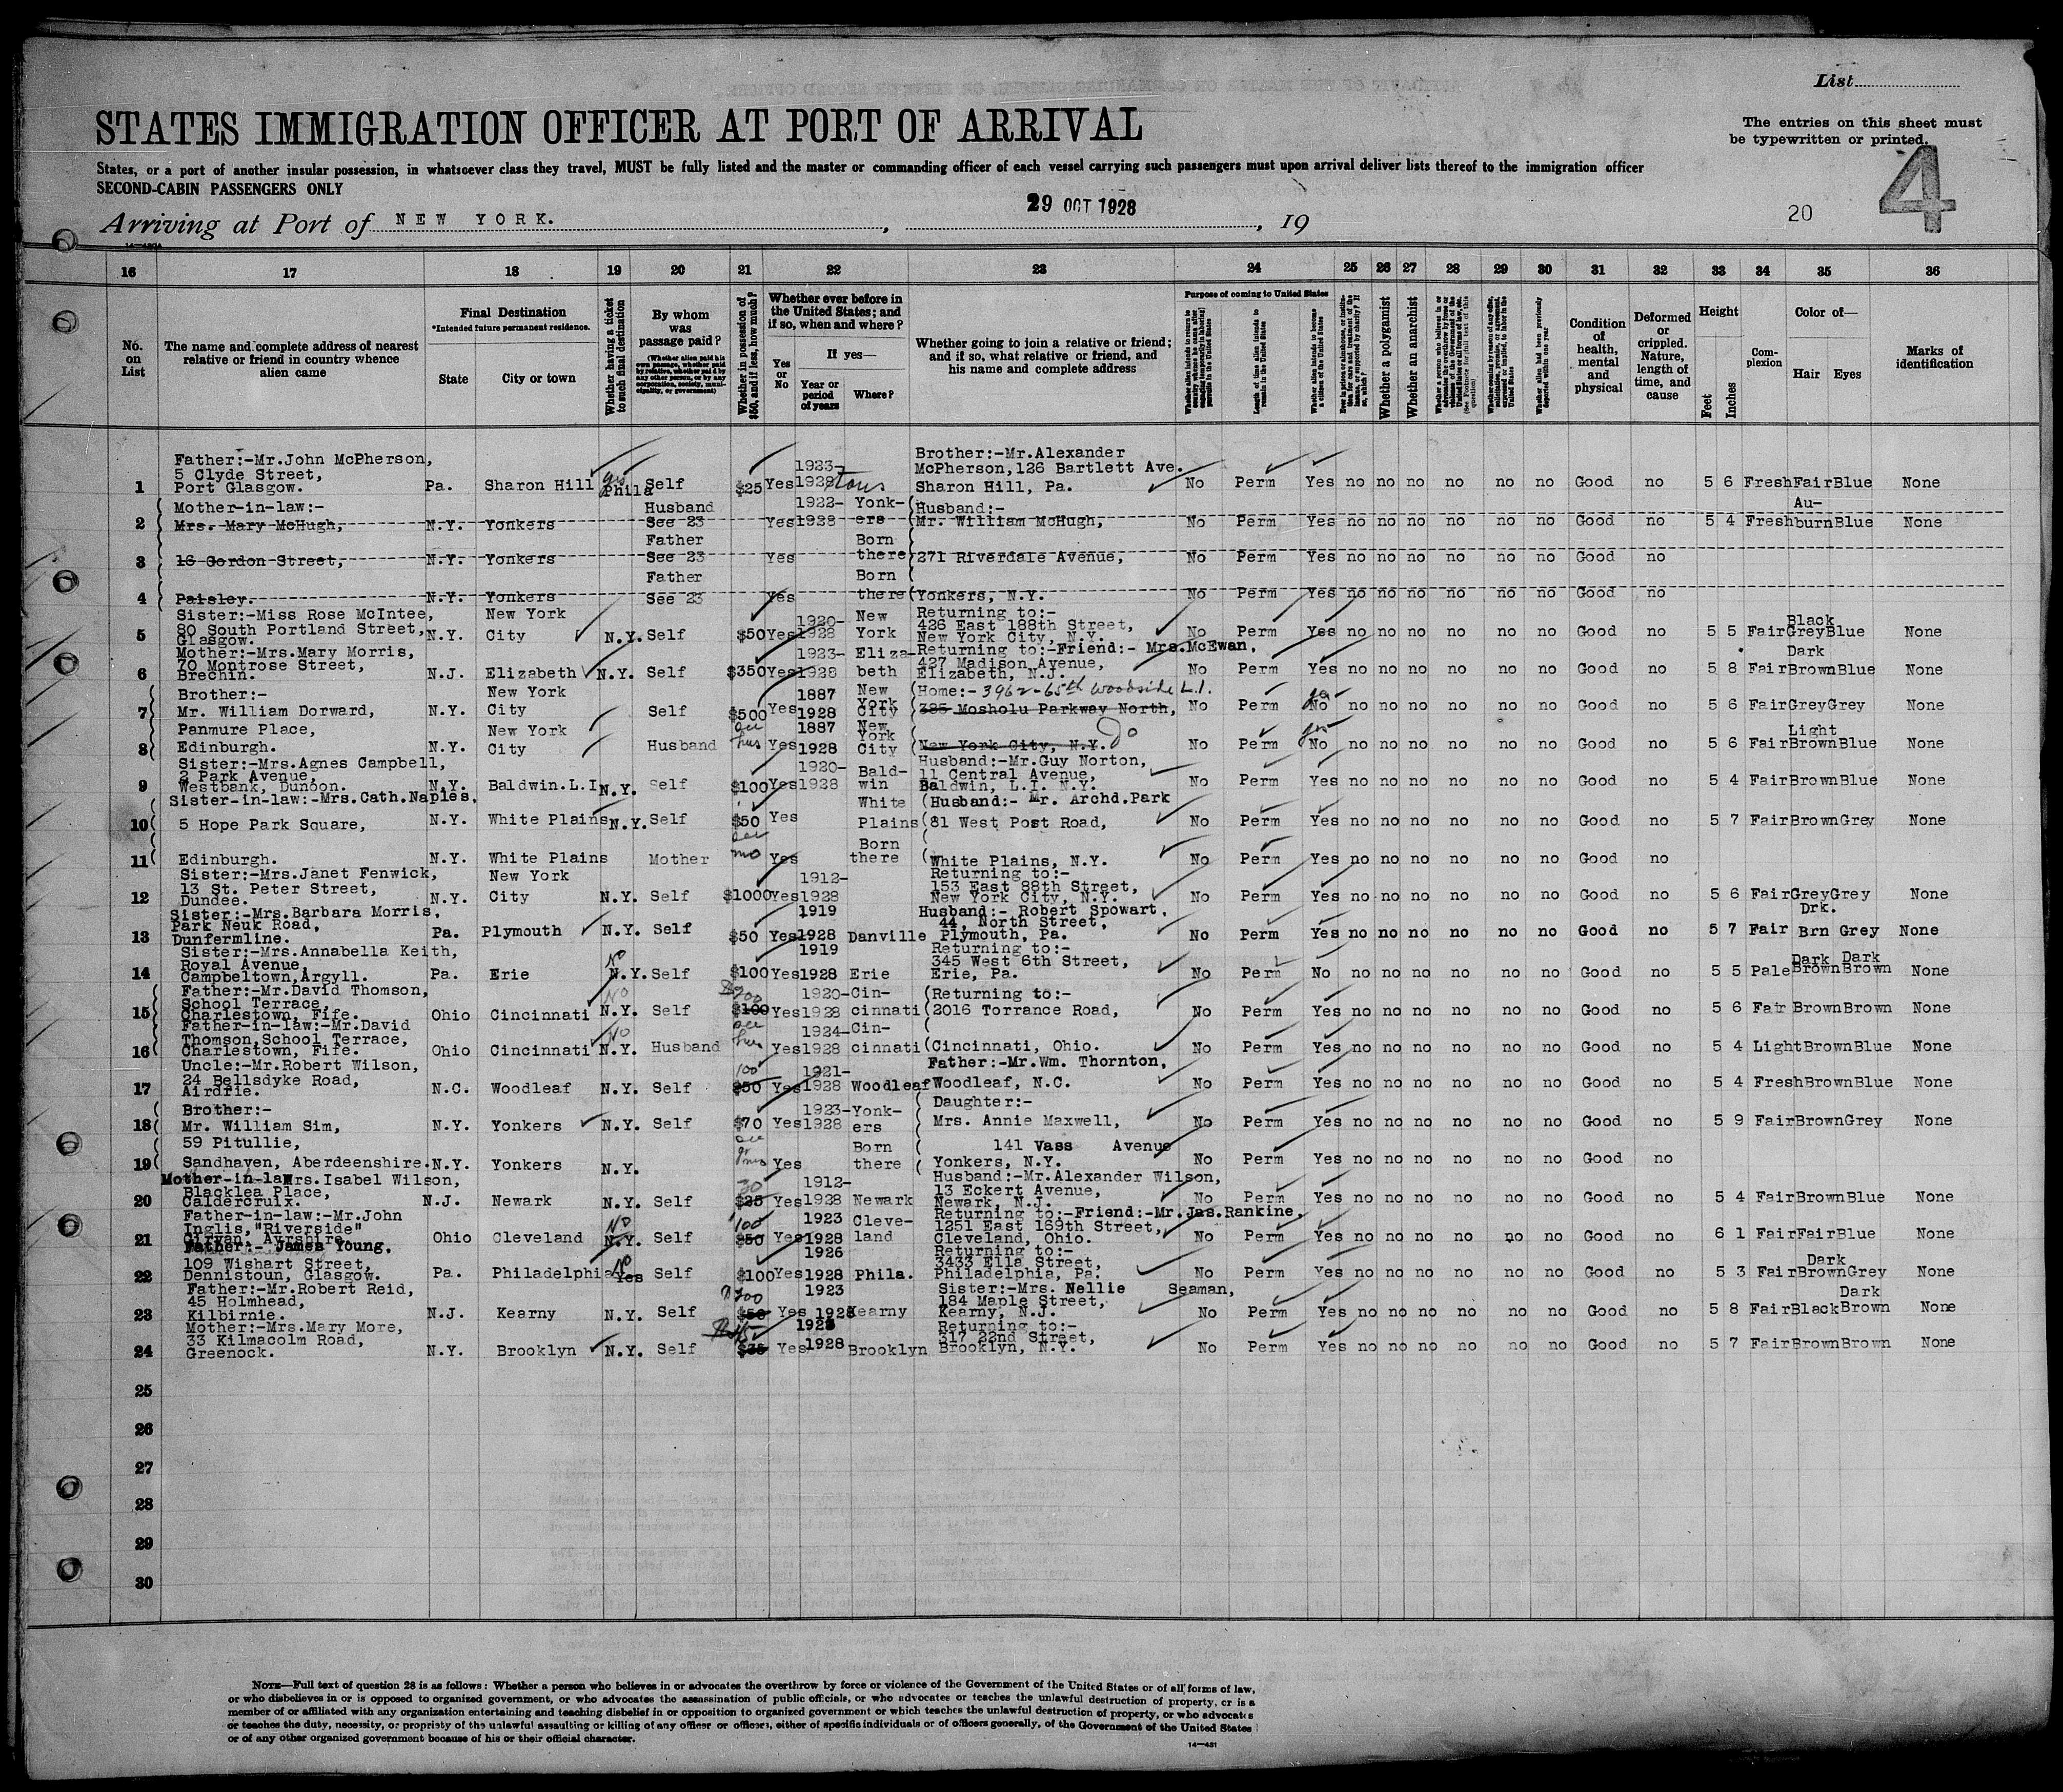 List
STATES IMMIGRATION OFFICER AT PORT OF ARRIVAL
The entries on this sheet must
be typewritten or printed.
States, or a port of another insular possession, in whatsoever class they travel, MUST be fully listed and the master or commanding officer of each vessel carrying such passengers must upon arrival deliver lists thereof to the immigration officer
SECOND-CABIN PASSENGERS ONLY
4
Arriving at Port of NEW YORK. , 29 OCT 1928 , 19
20
16 17 18 19 20 21 22 23 24 25 26 27 28 29 30 31 32 33 34 35 36
No. on List
The name and complete address of nearest relative or friend in country whence alien came
Final Destination
*Intended future permanent residence.
State City or town
Whether having a ticket to such final destination
By whom was passage paid?
(Whether alien paid his own passage, whether paid by relative, whether paid by any other person, or by any corporation, society, municipality, or government)
Whether in possession of $50, and if less, how much?
Whether ever before in the United States; and if so, when and where?
Yes or No
If yes—
Year or period of years
Where?
Whether going to join a relative or friend; and if so, what relative or friend, and his name and complete address
Purpose of coming to United States
Length of time alien intends to remain in the United States
Whether alien intends to become a citizen of the United States
Whether a polygamist
Whether an anarchist
Whether alien had been previously deported within one year
Condition of health, mental and physical
Deformed or crippled. Nature, length of time, and cause
Height
Feet Inches
Complexion
Color of—
Hair Eyes
Marks of identification
1 Father:-Mr.John McPherson, 5 Clyde Street, Port Glasgow. Pa. Sharon Hill yes Phila Self $25 Yes 1923-1928 Brother:-Mr.Alexander McPherson,126 Bartlett Ave. Sharon Hill, Pa. No Perm Yes no no no no no no Good no 5 6 Fresh Fair Blue None
2 Mother-in-law:- Mrs. Mary McHugh, N.Y. Yonkers Husband See 23 Yes 1922-1928 Yonkers Husband:- Mr. William McHugh, No Perm Yes no no no no no no Good no 5 4 Fresh Auburn Blue None
3 16 Gordon Street, N.Y. Yonkers Father See 23 Yes Born there 271 Riverdale Avenue, No Perm Yes no no no no no no Good no
4 Paisley. N.Y. Yonkers Father See 23 Yes Born there Yonkers, N.Y. No Perm Yes no no no no no no Good no
5 Sister:-Miss Rose McIntee, 80 South Portland Street, Glasgow. N.Y. New York City N.Y. Self $50 Yes 1920-1928 New York Returning to:- 426 East 188th Street, New York City, N.Y. No Perm Yes no no no no no no Good no 5 5 Fair Black Grey Blue None
6 Mother:-Mrs.Mary Morris, 70 Montrose Street, Brechin. N.J. Elizabeth N.Y. Self $350 Yes 1923-1928 Elizabeth Returning to:-Friend:- Mrs.McEwan, 427 Madison Avenue, Elizabeth, N.J. No Perm Yes no no no no no no Good no 5 8 Fair Dark Brown Blue None
7 Brother:- Mr. William Dorward, N.Y. New York City Self $500 Yes 1887 1928 New York City Home:- 3962-65th Woodside L.I. 385 Mosholu Parkway North, No Perm yes No no no no no no no Good no 5 6 Fair Grey Grey None
8 Panmure Place, Edinburgh. N.Y. New York City Husband see hus Yes 1887 1928 New York City New York City, N.Y. Do No Perm yes No no no no no no no Good no 5 6 Fair Light Brown Blue None
9 Sister:-Mrs.Agnes Campbell, 2 Park Avenue, Westbank, Dunoon. N.Y. Baldwin.L.I. N.Y. Self $100 Yes 1920-1928 Baldwin Husband:-Mr.Guy Norton, 11 Central Avenue, Baldwin, L.I. N.Y. No Perm Yes no no no no no no Good no 5 4 Fair Brown Blue None
10 Sister-in-law:-Mrs.Cath.Naples, 5 Hope Park Square, N.Y. White Plains N.Y. Self $50 Yes White Plains Husband:- Mr. Archd.Park 81 West Post Road, No Perm Yes no no no no no no Good no 5 7 Fair Brown Grey None
11 Edinburgh. N.Y. White Plains Mother see mo Yes Born there White Plains, N.Y. No Perm Yes no no no no no no Good no
12 Sister:-Mrs.Janet Fenwick, 13 St. Peter Street, Dundee. N.Y. New York City N.Y. Self $1000 Yes 1912-1928 Returning to:- 153 East 88th Street, New York City, N.Y. No Perm Yes no no no no no no Good no 5 6 Fair Grey Grey None
13 Sister:-Mrs.Barbara Morris, Park Neuk Road, Dunfermline. Pa. Plymouth N.Y. Self $50 Yes 1919 1928 Danville Husband:- Robert Spowart, 44, North Street, Plymouth, Pa. No Perm Yes no no no no no no Good no 5 7 Fair Drk. Brn Grey None
14 Sister:-Mrs.Annabella Keith, Royal Avenue, Campbeltown,Argyll. Pa. Erie No N.Y. Self $100 Yes 1919 1928 Erie Returning to:- 345 West 6th Street, Erie, Pa. No Perm No no no no no no no Good no 5 5 Pale Dark Brown Dark Brown None
15 Father:-Mr.David Thomson, School Terrace, Charlestown, Fife. Ohio Cincinnati No N.Y. Self $200 $100 Yes 1920-1928 Cincinnati Returning to:- 2016 Torrance Road, No Perm Yes no no no no no no Good no 5 6 Fair Brown Brown None
16 Father-in-law:-Mr.David Thomson,School Terrace, Charlestown, Fife. Ohio Cincinnati No N.Y. Husband see hus Yes 1924-1928 Cincinnati Cincinnati, Ohio. No Perm Yes no no no no no no Good no 5 4 Light Brown Blue None
17 Uncle:-Mr.Robert Wilson, 24 Bellsdyke Road, Airdrie. N.C. Woodleaf N.Y. Self 100 $50 Yes 1921-1928 Woodleaf Father:-Mr.Wm. Thornton, Woodleaf, N.C. No Perm Yes no no no no no no Good no 5 4 Fresh Brown Blue None
18 Brother:- Mr. William Sim, N.Y. Yonkers N.Y. Self $70 Yes 1923-1928 Yonkers Daughter:- Mrs. Annie Maxwell, No Perm Yes no no no no no no Good no 5 9 Fair Brown Grey None
19 59 Pitullie, Sandhaven, Aberdeenshire. N.Y. Yonkers N.Y. Yes Born there 141 Vass Avenue Yonkers, N.Y. No Perm Yes no no no no no no Good no
20 Mother-in-law Mrs.Isabel Wilson, Blacklea Place, Caldercruix. N.J. Newark N.Y. Self 30 $25 Yes 1912-1928 Newark Husband:-Mr.Alexander Wilson, 13 Eckert Avenue, Newark, N.J. No Perm Yes no no no no no no Good no 5 4 Fair Brown Blue None
21 Father-in-law:-Mr.John Inglis,"Riverside" Girvan, Ayrshire. Ohio Cleveland No N.Y. Self 100 $50 Yes 1923 1928 Cleveland Returning to:-Friend:-Mr.Jas.Rankine, 1251 East 169th Street, Cleveland, Ohio. No Perm Yes no no no no no no Good no 6 1 Fair Fair Blue None
22 Father:- James Young, 109 Wishart Street, Dennistoun, Glasgow. Pa. Philadelphia No Yes Self $100 Yes 1926 1928 Phila. Returning to:- 3433 Ella Street, Philadelphia, Pa. No Perm Yes no no no no no no Good no 5 3 Fair Dark Brown Grey None
23 Father:-Mr.Robert Reid, 45 Holmhead, Kilbirnie. N.J. Kearny N.Y. Self 200 $50 Yes 1923 1928 Kearny Sister:-Mrs. Nellie Seaman, 184 Maple Street, Kearny, N.J. No Perm Yes no no no no no no Good no 5 8 Fair Black Dark Brown None
24 Mother:-Mrs.Mary More, 33 Kilmacolm Road, Greenock. N.Y. Brooklyn N.Y. Self $35 Yes 1925 1928 Brooklyn Returning to:- 317 22nd Street, Brooklyn, N.Y. No Perm Yes no no no no no no Good no 5 7 Fair Brown Brown None
25
26
27
28
29
30
NOTE—Full text of question 28 is as follows: Whether a person who believes in or advocates the overthrow by force or violence of the Government of the United States or of all forms of law,
or who disbelieves in or is opposed to organized government, or who advocates the assassination of public officials, or who advocates or teaches the unlawful destruction of property, or is a
member of or affiliated with any organization entertaining and teaching disbelief in or opposition to organized government or which teaches the unlawful destruction of property, or who advocates
or teaches the duty, necessity, or propriety of the unlawful assaulting or killing of any officer or officers, either of specific individuals or of officers generally, of the Government of the United States
or of any other organized government because of his or their official character.
14—431